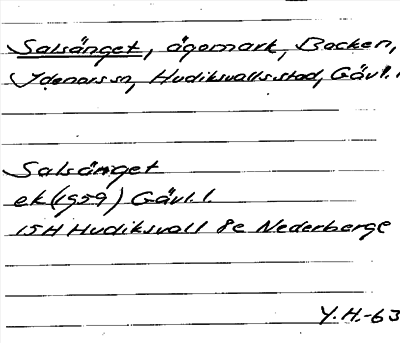 Salsänget, ägomark, Backen,
Idenors sn, Hudiksvalls stad, Gävl.l.
Salsänget
ek (1959) Gävl.l.
15H Hudiksvall 8e Nederberge
Y.H.-63